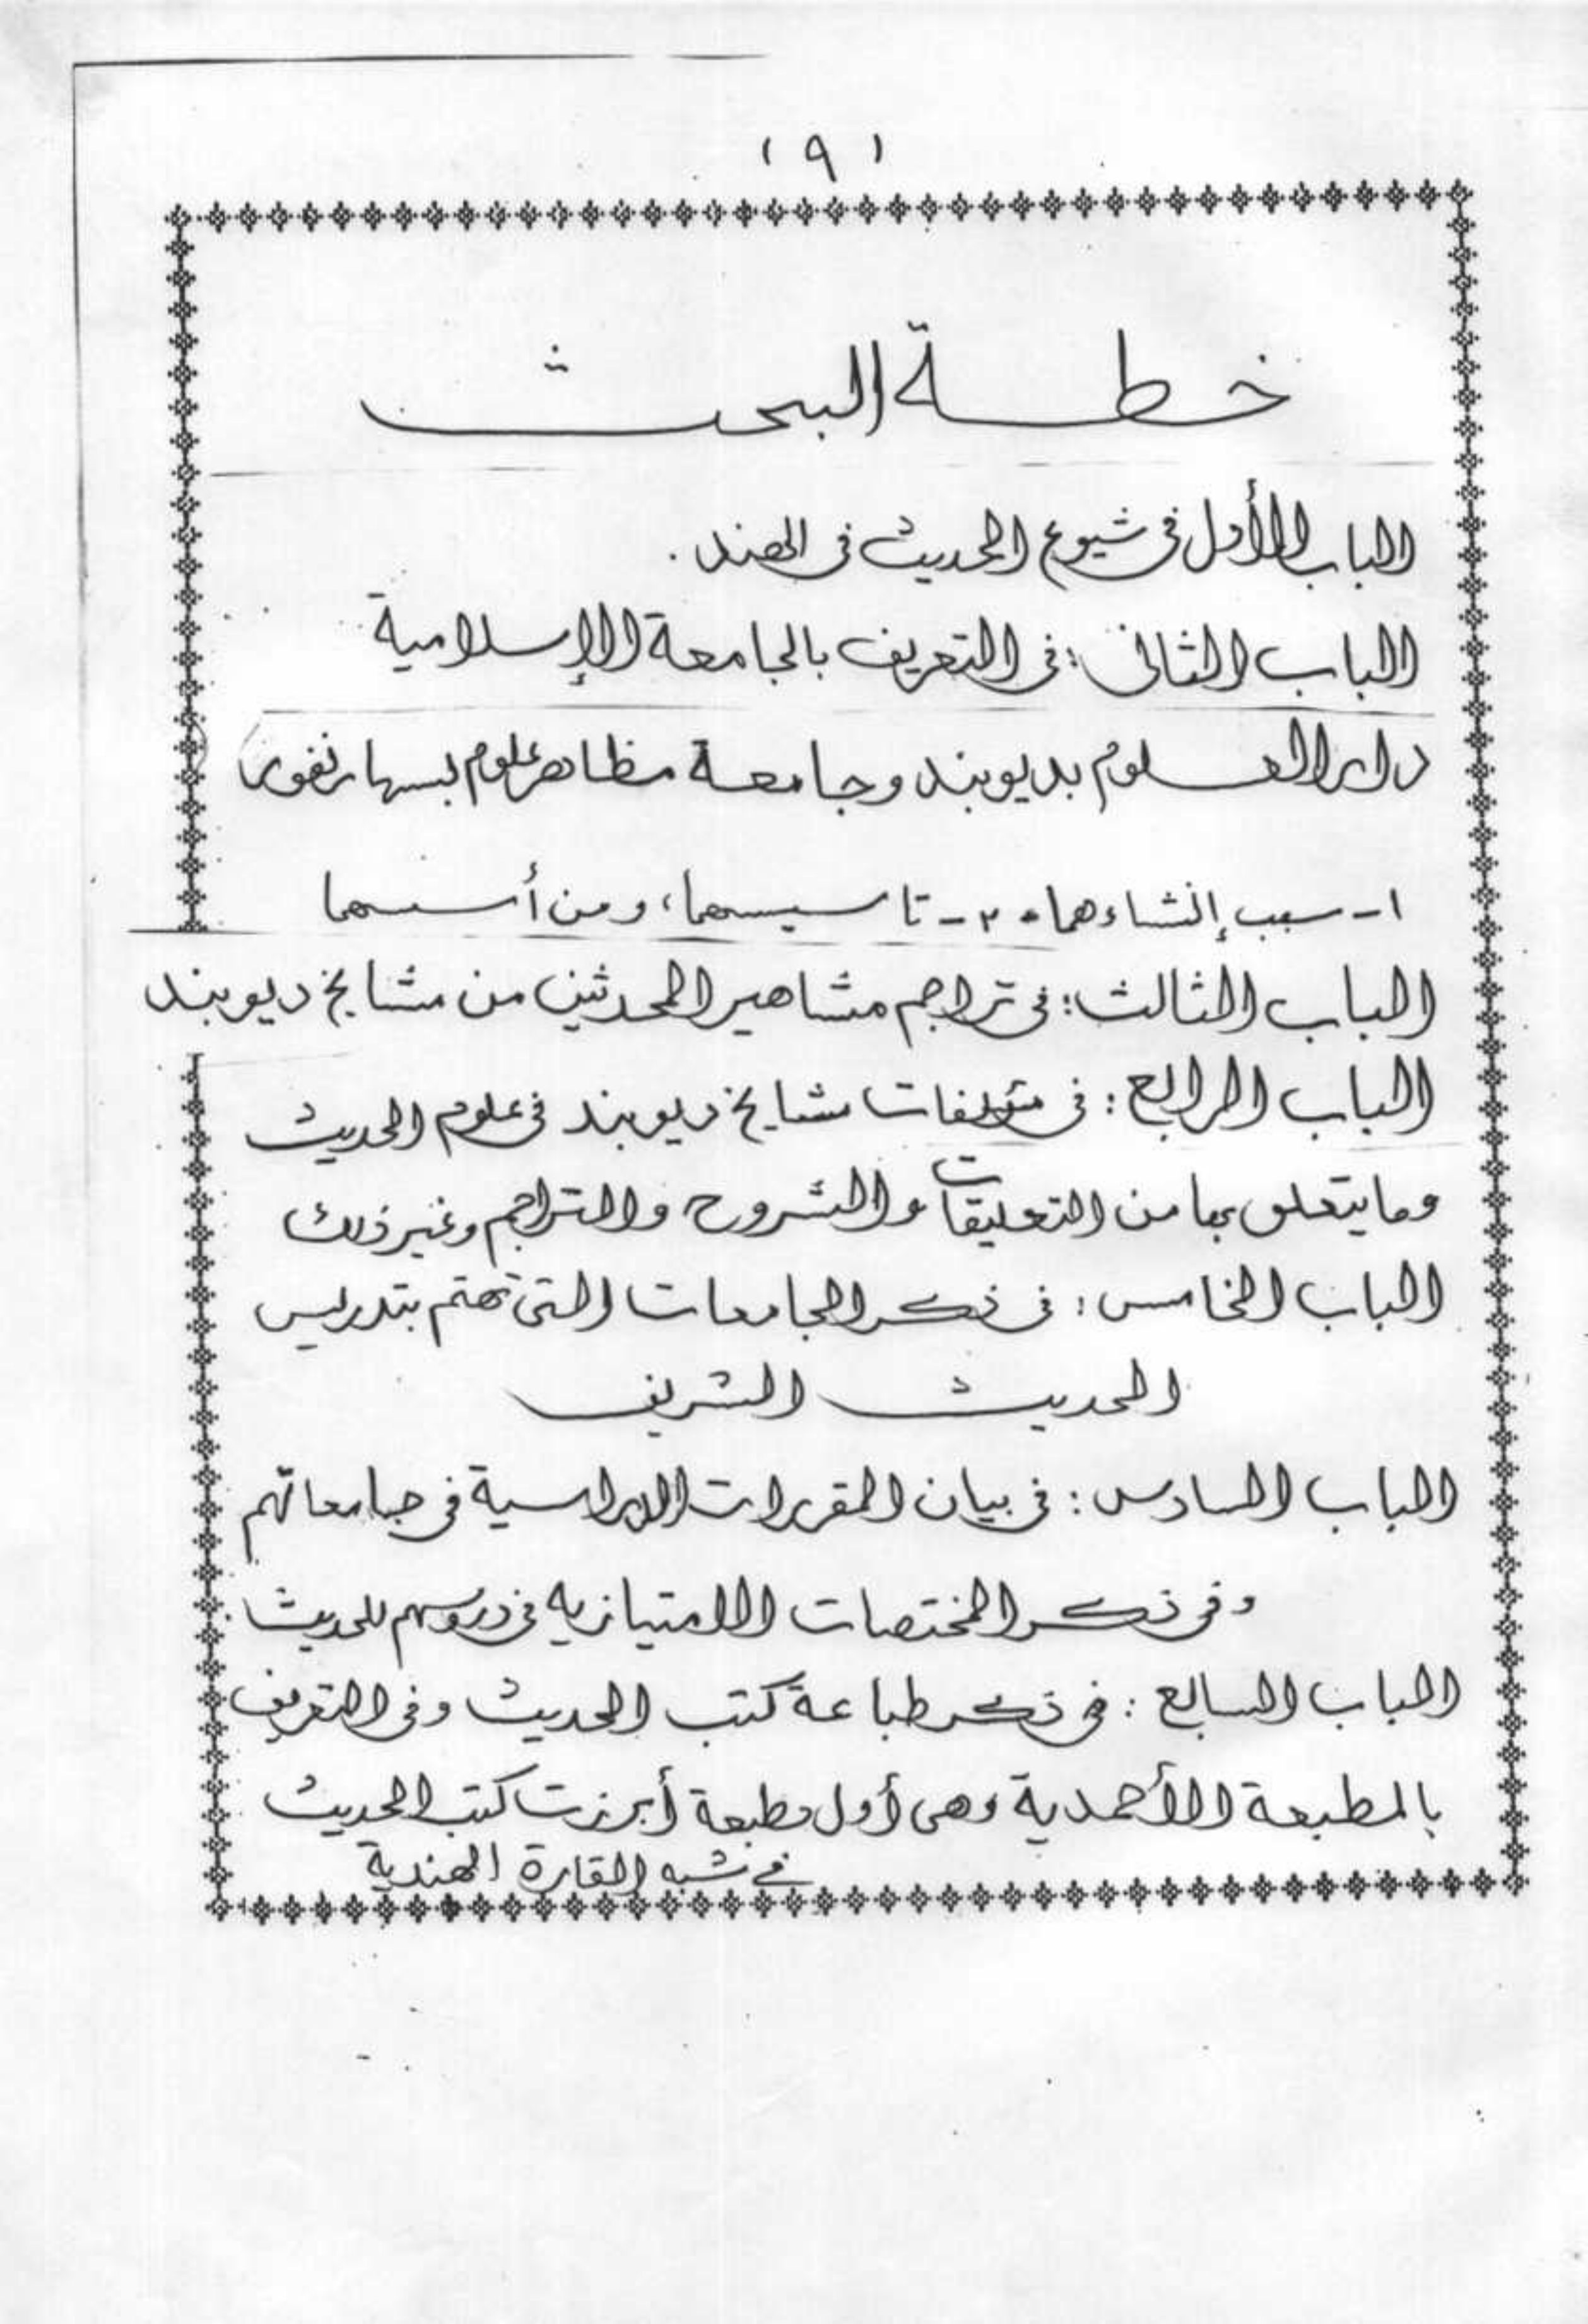 ( ٩ )
خطة البحث
الباب الأول فى شيوع الحديث فى الهند .
الباب الثانى : فى التعريف بالجامعة الإسلامية
دار العلوم بديوبند وجامعة مظاهر علوم بسهارنفور
١ - سبب إنشاءهما - ٢ - تاسيسهما ، ومن أسسهما
الباب الثالث : فى تراجم مشاهير المحدثين من مشايخ ديوبند
الباب الرابع : فى مؤلفات مشايخ ديوبند فى علوم الحديث
وما يتعلق بها من التعليقات والشروح والتراجم وغير ذلك
الباب الخامس : فى ذكر الجامعات التى تهتم بتدريس
الحديث الشريف
الباب السادس : فى بيان المقررات الدراسية فى جامعاتهم
وفى ذكر المختصات الامتيازيه فى دروسهم للحديث
الباب السابع : فى ذكر طباعة كتب الحديث وفى التعريف
بالمطبعة الأحمدية وهى أول مطبعة أبرزت كتب الحديث
فى شبه القارة الهندية